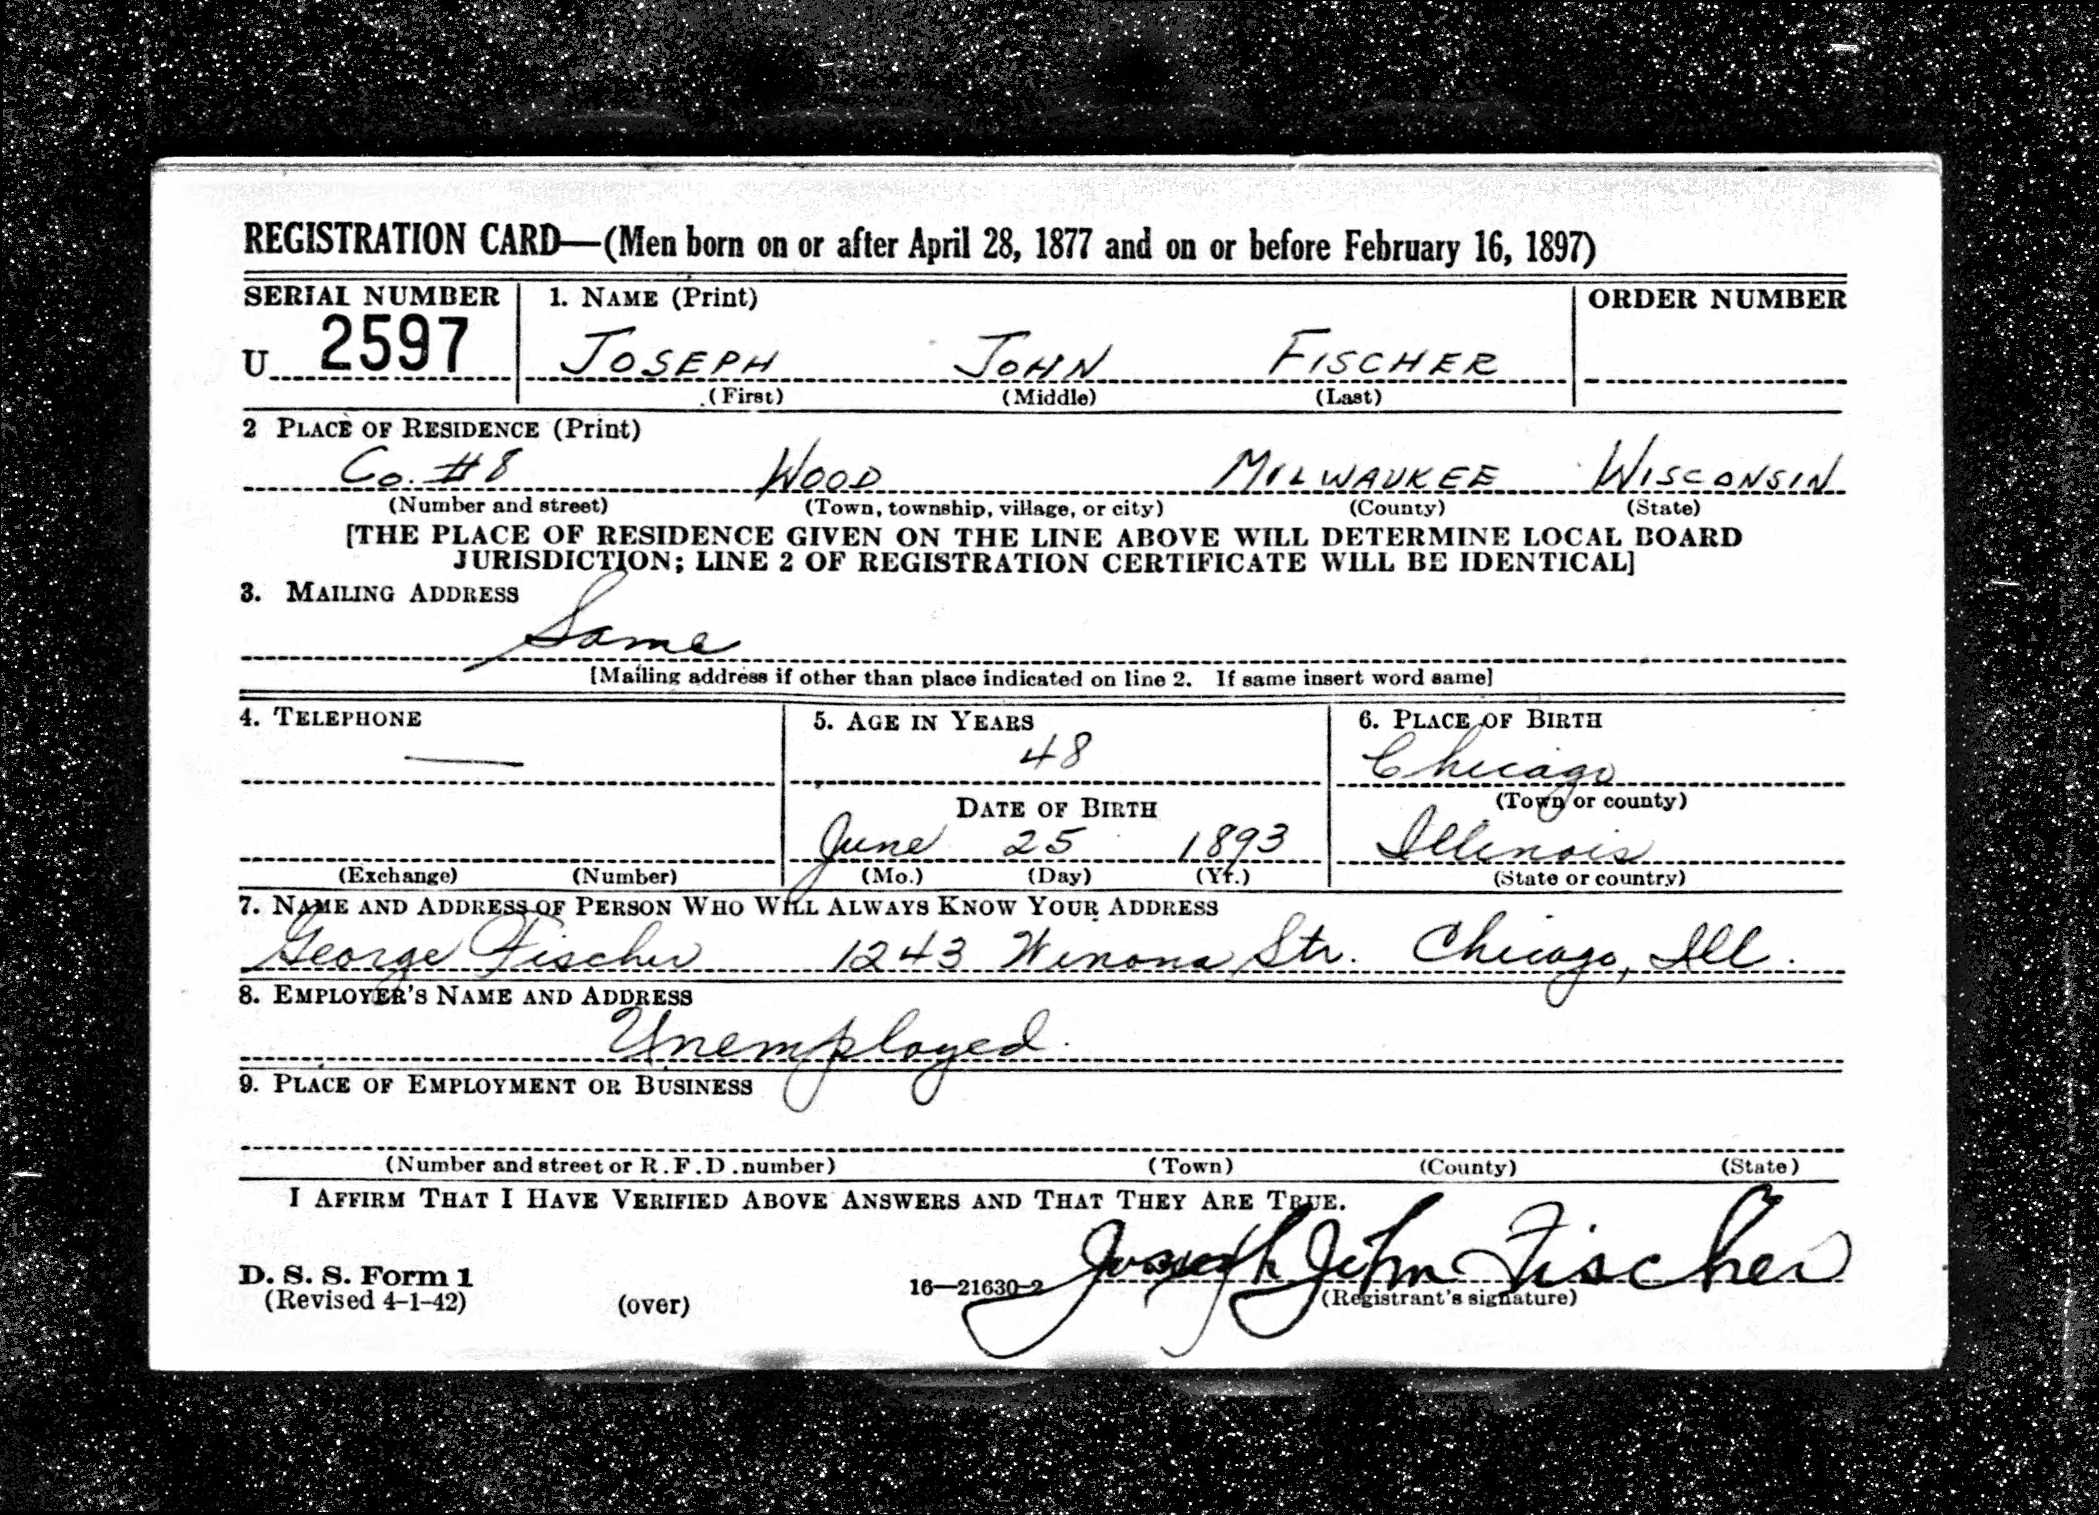 REGISTRATION CARD—(Men born on or after April 28, 1877 and on or before February 16, 1897)
SERIAL NUMBER 1. NAME (Print) ORDER NUMBER
U 2597 JOSEPH JOHN FISCHER
(First) (Middle) (Last)
2 PLACE OF RESIDENCE (Print)
Co. #8 WOOD MILWAUKEE WISCONSIN
(Number and street) (Town, township, village, or city) (County) (State)
[THE PLACE OF RESIDENCE GIVEN ON THE LINE ABOVE WILL DETERMINE LOCAL BOARD
JURISDICTION; LINE 2 OF REGISTRATION CERTIFICATE WILL BE IDENTICAL]
3. MAILING ADDRESS
Same
[Mailing address if other than place indicated on line 2. If same insert word same]
4. TELEPHONE 5. AGE IN YEARS 6. PLACE OF BIRTH
— 48 Chicago
DATE OF BIRTH (Town or county)
June 25 1893 Illinois
(Exchange) (Number) (Mo.) (Day) (Yr.) (State or country)
7. NAME AND ADDRESS OF PERSON WHO WILL ALWAYS KNOW YOUR ADDRESS
George Fischer 1243 Winona Str. Chicago, Ill.
8. EMPLOYER'S NAME AND ADDRESS
Unemployed.
9. PLACE OF EMPLOYMENT OR BUSINESS
(Number and street or R.F.D. number) (Town) (County) (State)
I AFFIRM THAT I HAVE VERIFIED ABOVE ANSWERS AND THAT THEY ARE TRUE.
Joseph John Fischer
D. S. S. Form 1
(Revised 4-1-42) (over) 16—21630-2 (Registrant's signature)